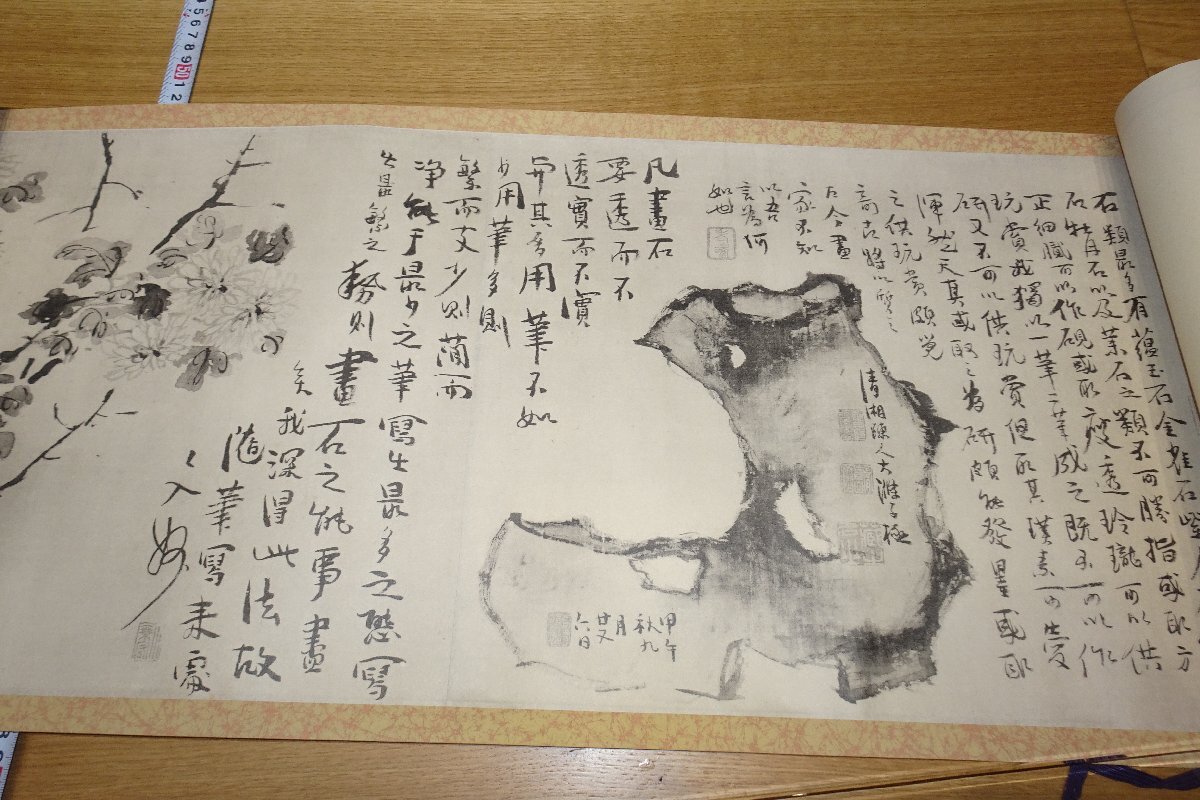 石類最多有蘊玉石金雀石
石牡丹石以及菜石之類不可勝指或取方
正細膩可以作硯或取瘦透玲瓏可以供
玩賞我獨以一筆二筆成之既不可以作
研又不可以供玩賞但取其璞素
渾然天真或取之為研頗能發墨或取
之供玩賞頗覺
奇古將以質之
古今畫
家不知
以吾
言為何
如也
清湘陳人大滌子極
甲午
秋九
月
廿又
六日
凡畫石
要透而不
透實而不實
與其多用筆不如
少用筆多則
繁而文少則簡而
淨能于最少之筆寫出最多之態寫
出最繁之勢則畫石之能事盡
矣我深得此法故
隨筆寫來處
入妙
5
6
7
8
9
50
1
2